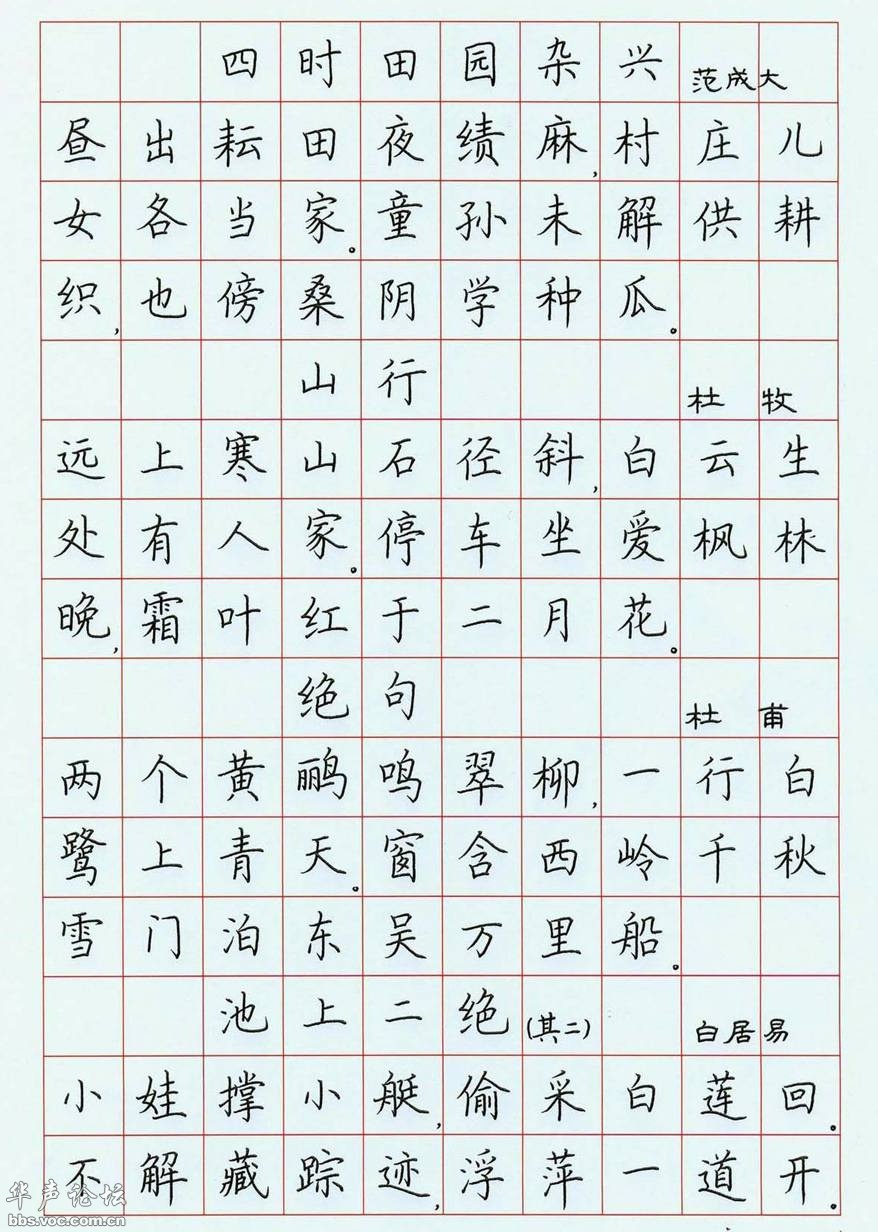 四时田园杂兴 范成大
昼出耘田夜绩麻,村庄儿
女各当家。童孙未解供耕
织,也傍桑阴学种瓜。
山行 杜牧
远上寒山石径斜,白云生
处有人家。停车坐爱枫林
晚,霜叶红于二月花。
绝句 杜甫
两个黄鹂鸣翠柳,一行白
鹭上青天。窗含西岭千秋
雪门泊东吴万里船。
池上二绝(其二) 白居易
小娃撑小艇,偷采白莲回。
不解藏踪迹,浮萍一道开。
华声论坛
bbs.voc.com.cn